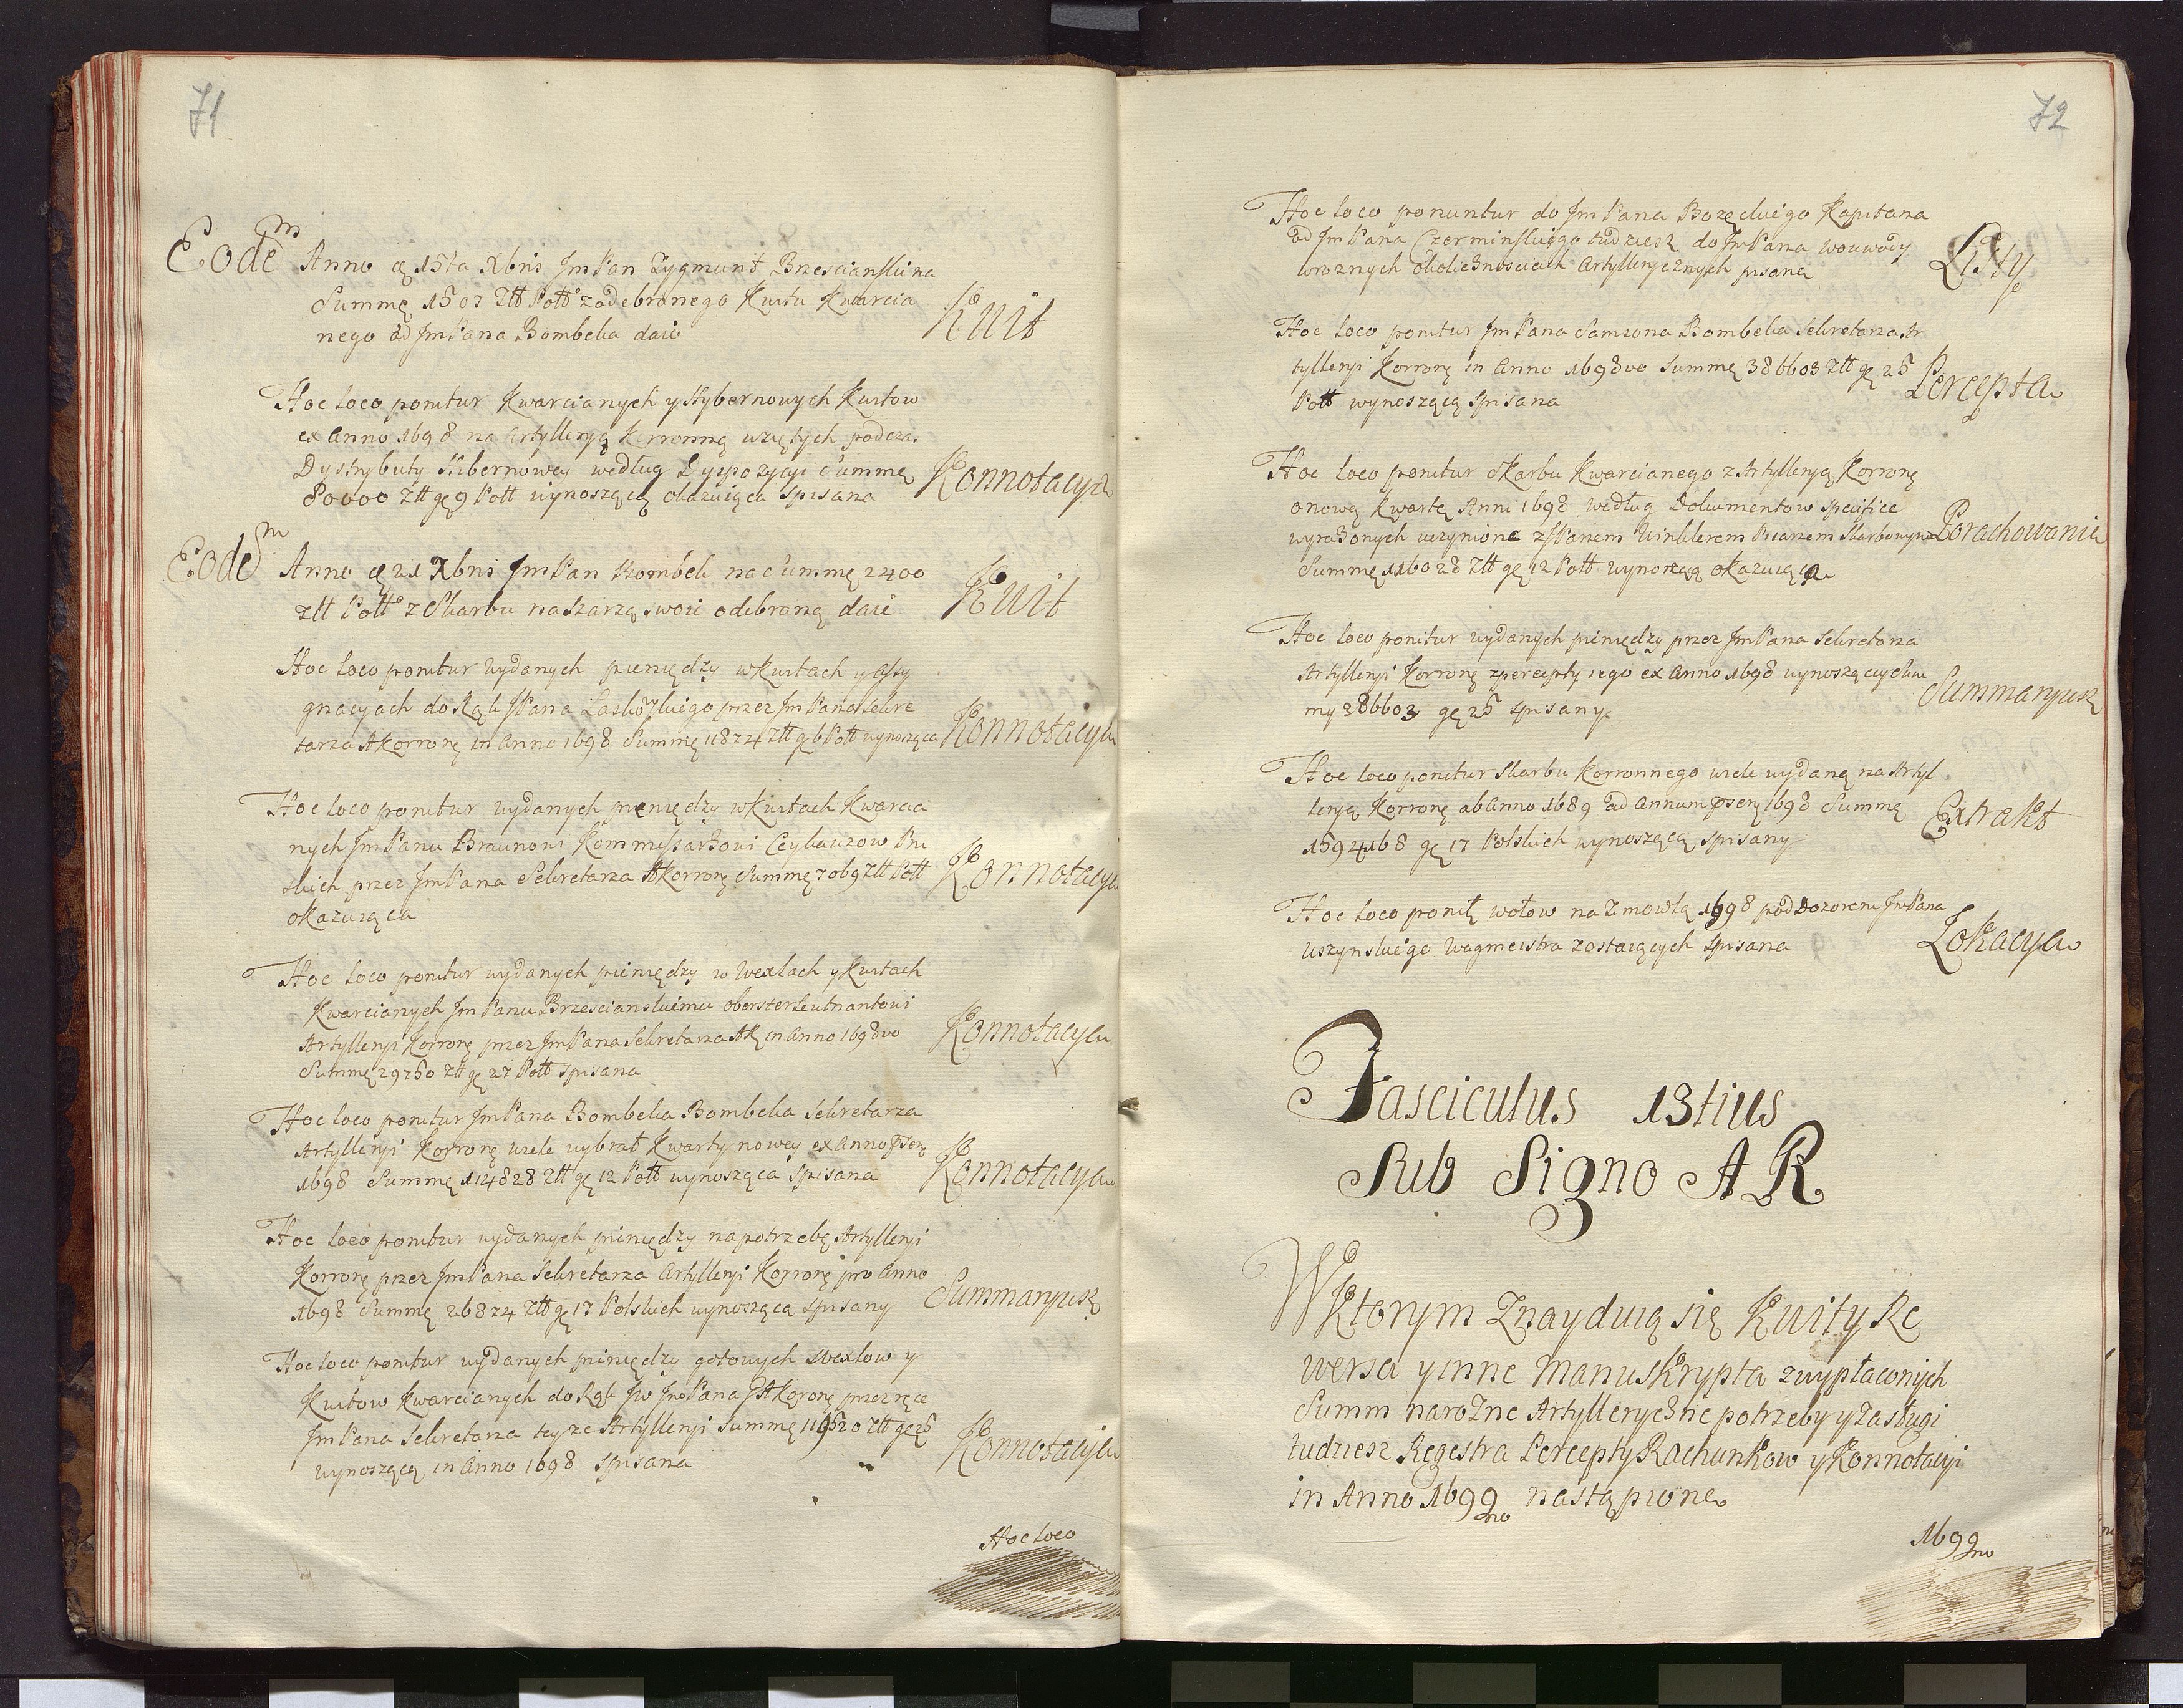 71
Eodem Anno d 15ta Xbris JmPan Zygmunt Brzescianski na
Summę 1507 Ztt Poll zodebranego Kwitu Kwarcia
nego od JmPana Bombeka daie
Kwit
Hoc loco ponitur Kwarcianych y Hybernowych Kwitow
ex Anno 1698 na Artylleryą Korronną wziętych podczas
Dystrybuty Hibernowey według Dyspozycyi Summę
80000 Ztt gę 9 Poll wynoszącą okazuiąca spisana
Konnotacya
Eodem Anno d 21 Xbris JmPan Bombek na Summę 2400
ztt Poll z Skarbu na Szarzą swoię odebraną daie
Kwit
Hoc loco ponitur wydanych pieniędzy w kwitach y assy
gnacyach do Rąk JPana Laskowskiego przez JmPana Sekre
tarza AKorronę in Anno 1698 Summę 11874 Ztt gę 6 Poll wynosząca
Konnotacya
Hoc loco ponitur wydanych pieniędzy w kwitach Kwarcia
nych JmPanu Braunowi Kommissarzowi Ceykauzow Pru
skich przez JmPana Sekretarza AKorronę Summę 7069 Ztt Poll
okazuiąca
Konnotacya
Hoc loco ponitur wydanych pieniędzy w Wexlach y Kwitach
Kwarcianych JmPanu Brzescianskiemu Obersterleutnantowi
Artylleryi Korronę przez JmPana Sekretarza AK in Anno 1698vo
Summę 29750 Ztt gę 27 Poll spisana
Konnotacya
Hoc loco ponitur JmPana Bombeka Bombeka Sekretarza
Artylleryi Korronę wiele wybrał Kwarty nowey ex Anno pserę
1698 Summę 124828 Ztt gę 12 Poll wynosząca spisana
Konnotacya
Hoc loco ponitur wydanych pieniędzy na potrzebę Artylleryi
Korronę przez JmPana Sekretarza Artylleryi Korronę pro Anno
1698 Summę 26874 Ztt gę 17 Polskich wynoszącą spisany
Summaryusz
Hoc loco ponitur wydanych pieniędzy gotowych Wexlow y
Kwitow Kwarcianych do Rąk Jw JmPana JAKoronę przez ręce
JmPana Sekretarza teyże Artylleryi Summę 116520 Ztt gę 25
wynoszącą in Anno 1698 spisana
Konnotacya
Hoc loco
72
Hoc loco ponuntur do JmPana Bozęckiego Kapitana
od JmPana Czerminskiego tudziesz do JmPana Woiewody
wroznych okolicznosciach Artyllerycznych pisana
Listy
Hoc loco ponitur JmPana Samsona Bombeka Sekretarza Ar
tylleryi Korronę in Anno 1698vo Summę 386603 Ztt gę 25
Poll wynoszącą spisana
Percepta
Hoc loco ponitur Skarbu Kwarcianego z Artylleryą Korronę
o nową Kwartę Anni 1698 według Dokumentow specifice
wyrażonych uczynione z JPanem Winklerem Pisarzem Skarbowym
Summę 116028 Ztt gę 12 Poll wynoszącą okazuiąca
Porachowanie
Hoc loco ponitur wydanych pieniędzy przez JmPana Sekretarza
Artylleryi Korronę zpercepty iego ex Anno 1698 wynoszącey Sum
my 386603 gę 25 spisany
Summaryusz
Hoc loco ponitur Skarbu Korronnego wiele wydanę na Artyl
leryą Korronę ab Anno 1689 ad Annum pserę 1698 Summę
1594168 gę 17 Polskich wynoszącą spisany
Extrakt
Hoc loco ponitę wołow na Zmowlą 1698 pod Dozorem JmPana
Uszynskiego Wagmeistra zostaiących spisana
Lokacya
Fasciculus 13tius
Sub Signo A R
W Ktorym Znayduią się Kwity Re
wersa y inne Manuskrypta z wypłaconych
Summ na rożne Artylleryczne potrzeby y Zasługi
tudziesz Regestra Percepty Rachunkow y Konnotacyi
in Anno 1699no nastąpione
1699no